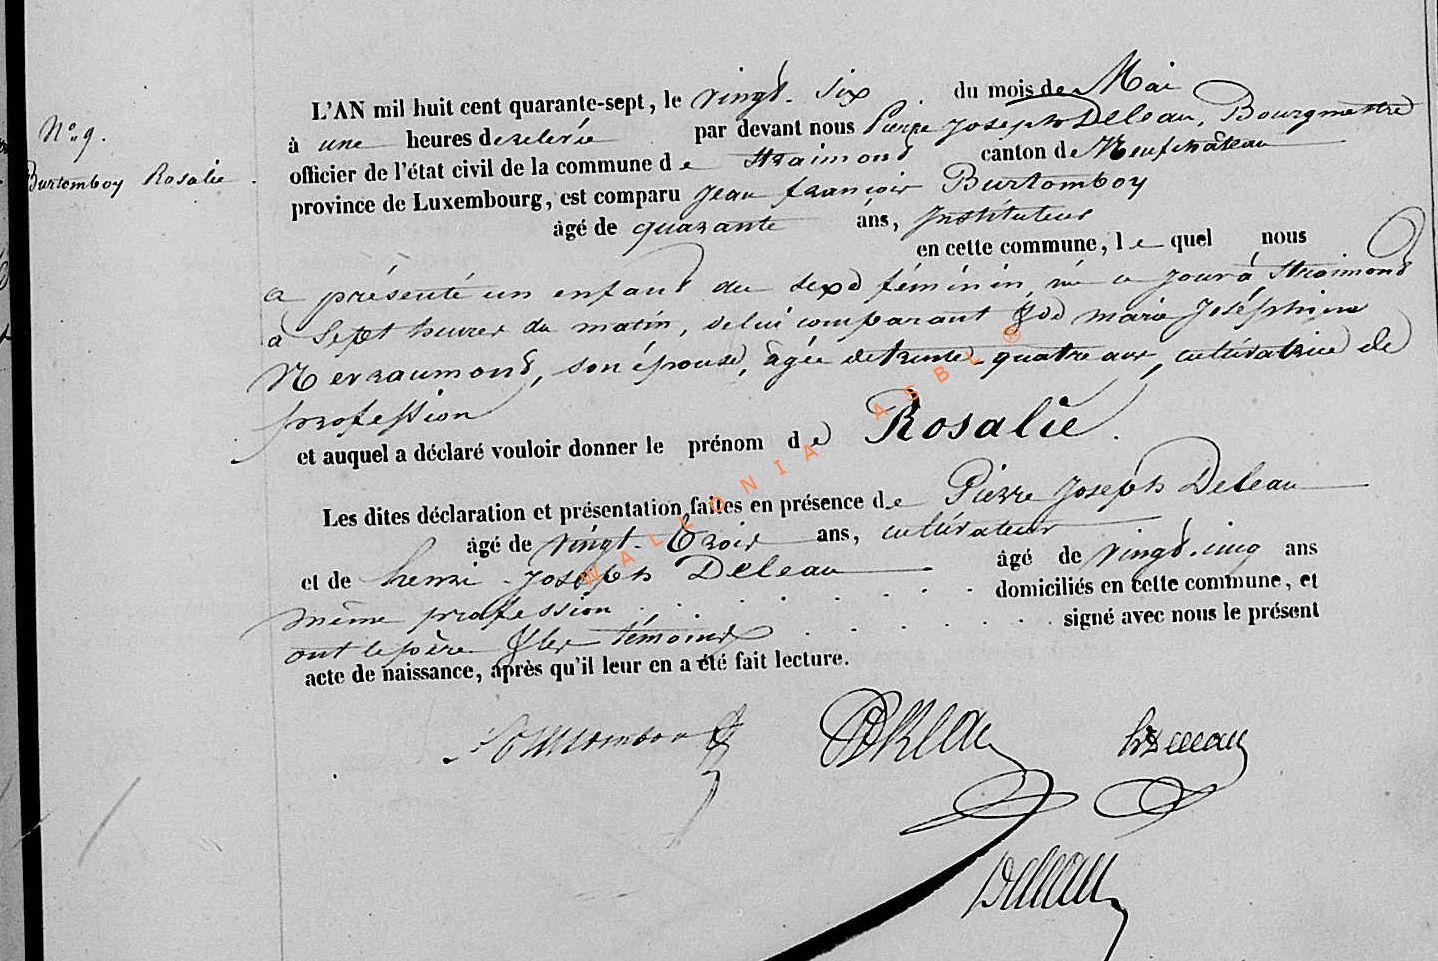 N° 9.
Burtomboy Rosalie
L'AN mil huit cent quarante-sept, le vingt-six du mois de Mai
à une heures de relevée par devant nous Pierre Joseph Deleau, Bourgmestre
officier de l'état civil de la commune de Straimont canton de Neufchâteau
province de Luxembourg, est comparu Jean françois Burtomboy
âgé de quarante ans, Instituteur
en cette commune, lequel nous
a présenté un enfant du sexe féminin, né ce jour à Straimont
à Sept heures du matin, de lui comparant & de marie Joséphine
Nerraumont, son épouse, âgée de trente-quatre ans, cultivatrice de
profession
et auquel a déclaré vouloir donner le prénom de Rosalie.
Les dites déclaration et présentation faites en présence de Pierre Joseph Deleau
âgé de vingt-trois ans, cultivateur
et de henri-Joseph Deleau âgé de vingt-cinq ans
même profession domiciliés en cette commune, et
ont le père & les témoins signé avec nous le présent
acte de naissance, après qu'il leur en a été fait lecture.
Deleau
WALLONIA ASBL ®